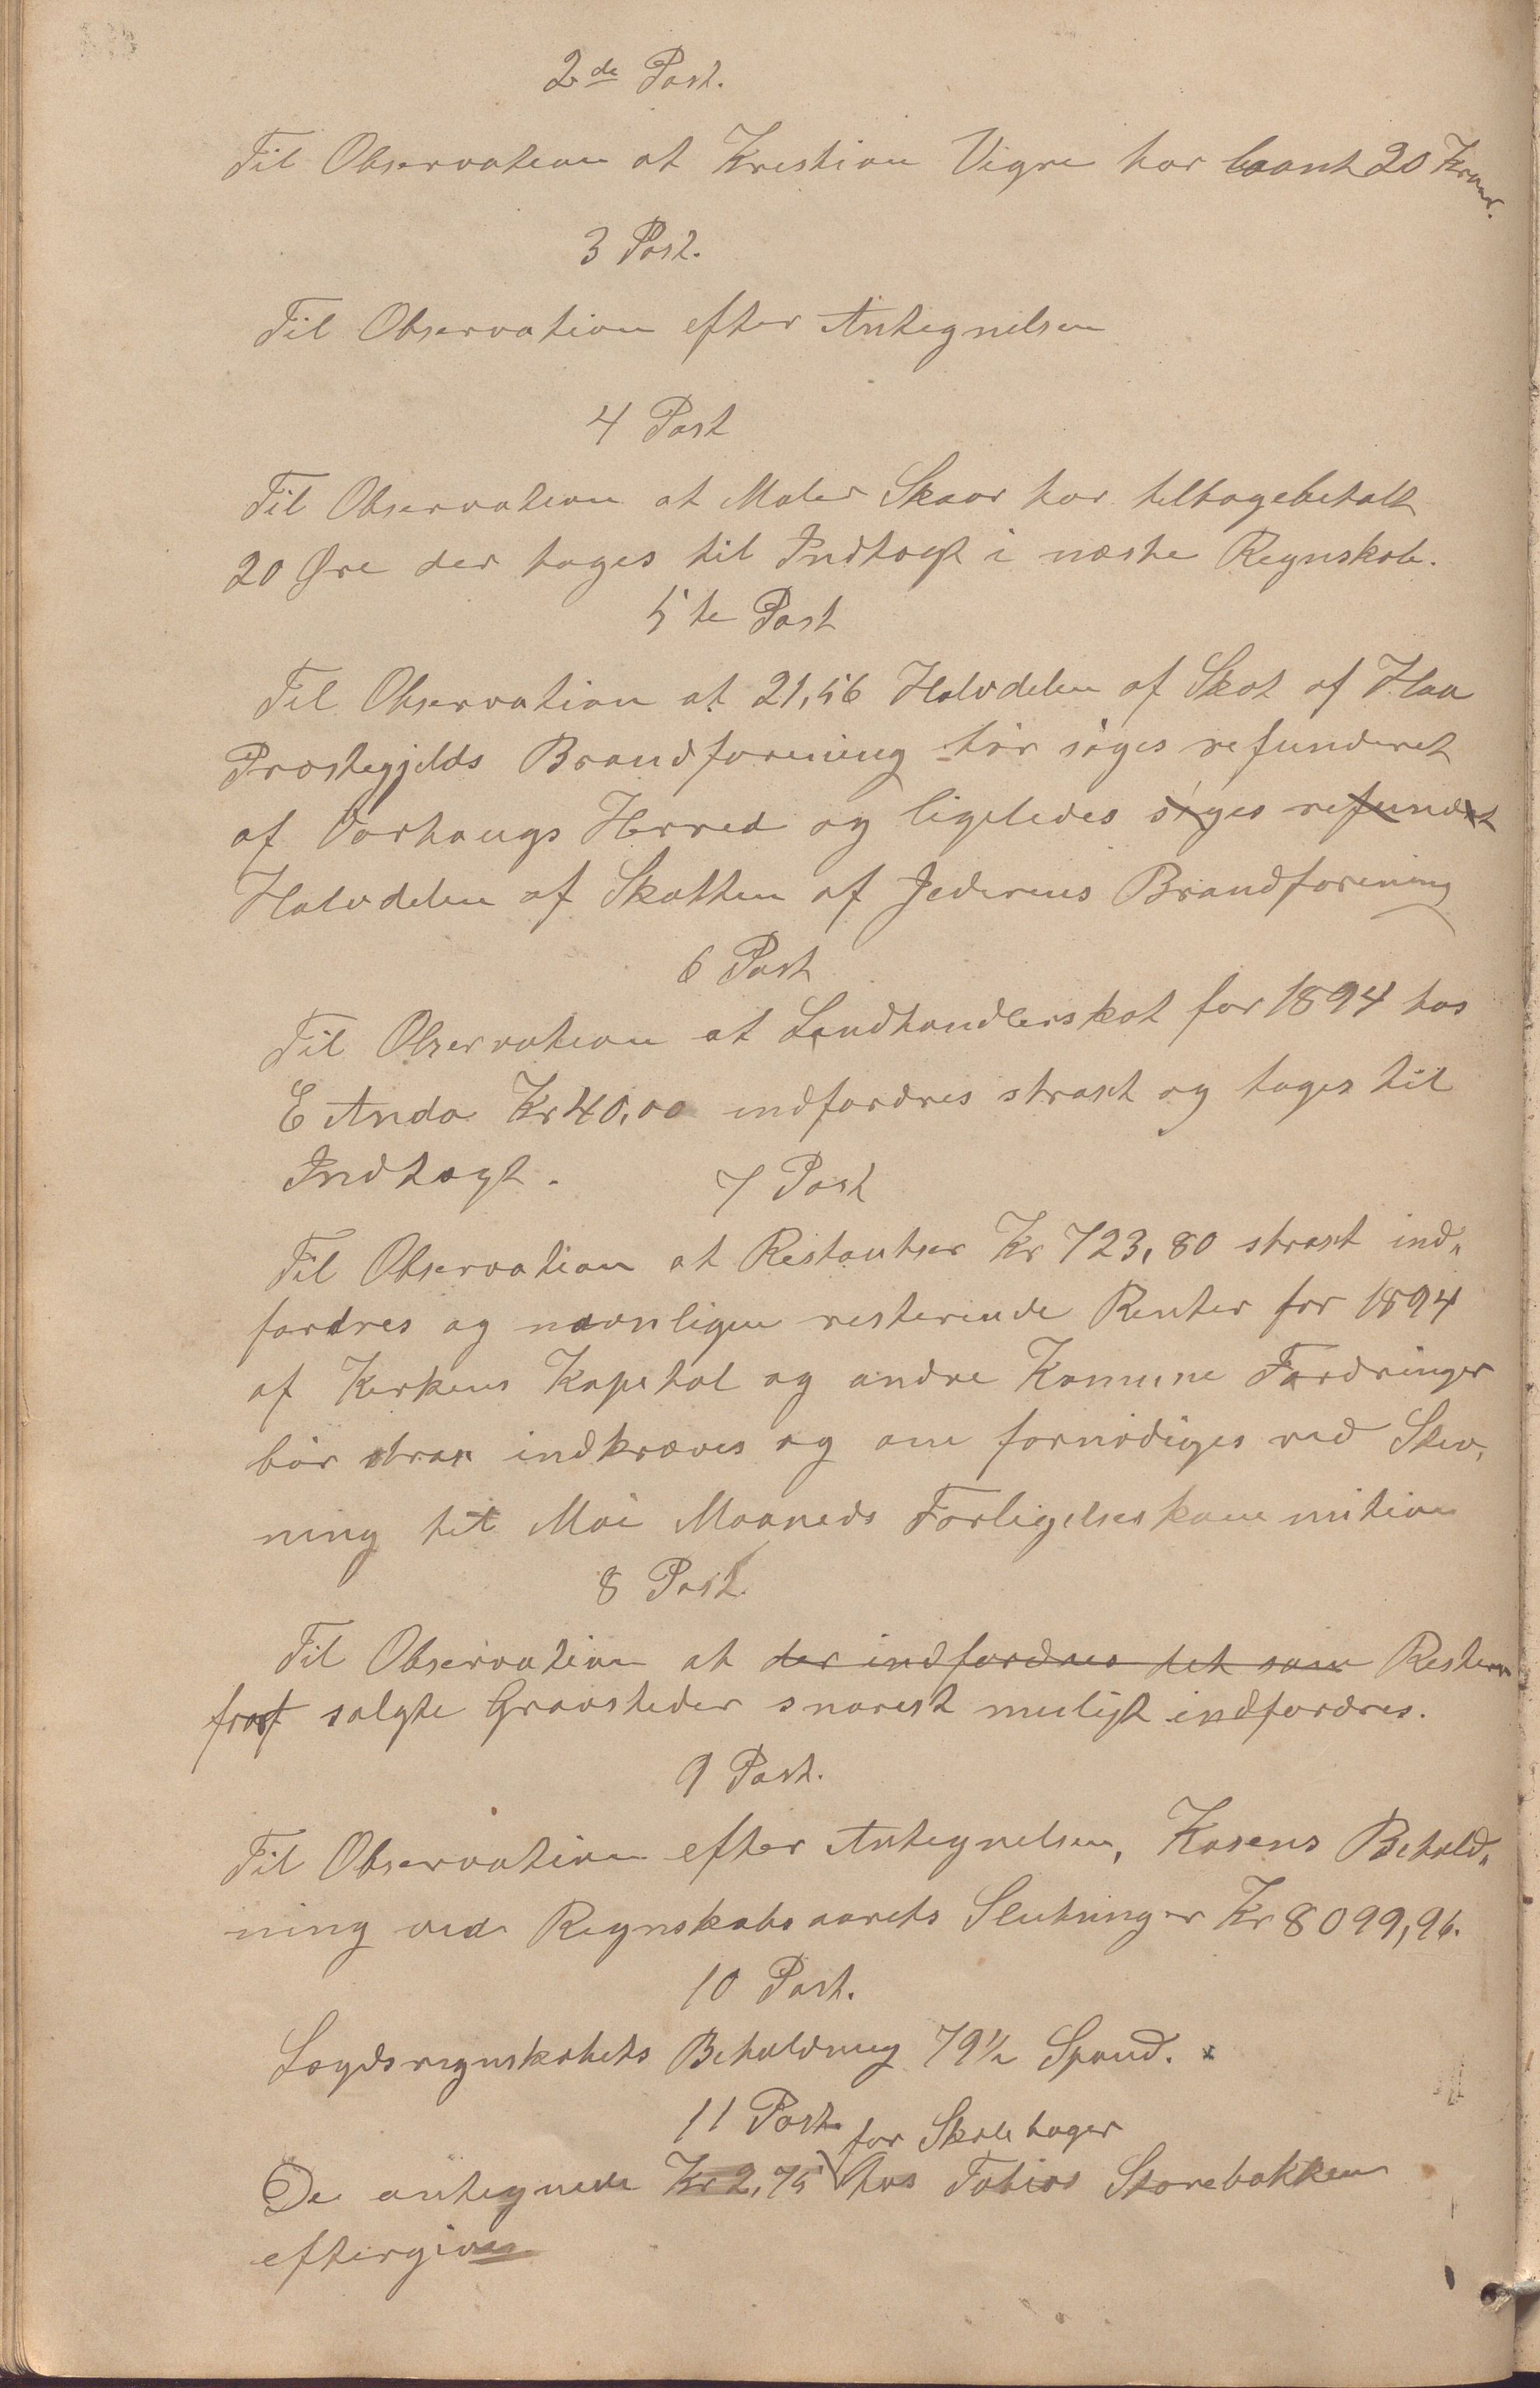 2de Post.
Til Observation at Kristian Vigre har laant 20 Kroner.
3 Post.
Til Observation efter Antegnelsen
4 Post
Til Observation at Maler Skaar har tilbagebetalt
20 Øre der tages til Indtægt i næste Regnskab.
5te Post
Til Observation at 21,56 Halvdelen af Skat af Haa
Præstegjelds Brandforening bör söges refunderet
af Varhaugs Herred og ligeledes söges refundert
Halvdelen af Skatten af Jederens Brandforening
6 Post
Til Observation at Landhandlerskat for 1894 hos
E Anda Kr 40,00 indfordres straxt og tages til
Indtægt.
7 Post
Til Observation at Restantser Kr 723,80 straxt ind„
fordres og navnligen resterende Renter for 1894
af Kirkens Kapital og andre Komune Fordringer
bör strax indkræves og om fornödiges ved Stev„
ning til Mai Maaneds Forligelseskommition
8 Post
Til Observation at der indfordres det som Resten
for solgte Gravsteder snarest muligt indfordres.
9 Post.
Til Observation efter Antegnelsen, Kasens Behold„
ning ved Regnskabsaarets Slutning er Kr 8099,96.
10 Post.
Lægdsregnskabets Beholdning 79½ Spand.
11 Post
for Skolebøger
De antegnede Kr 2,75 hos Tobias Storebakken
eftergives